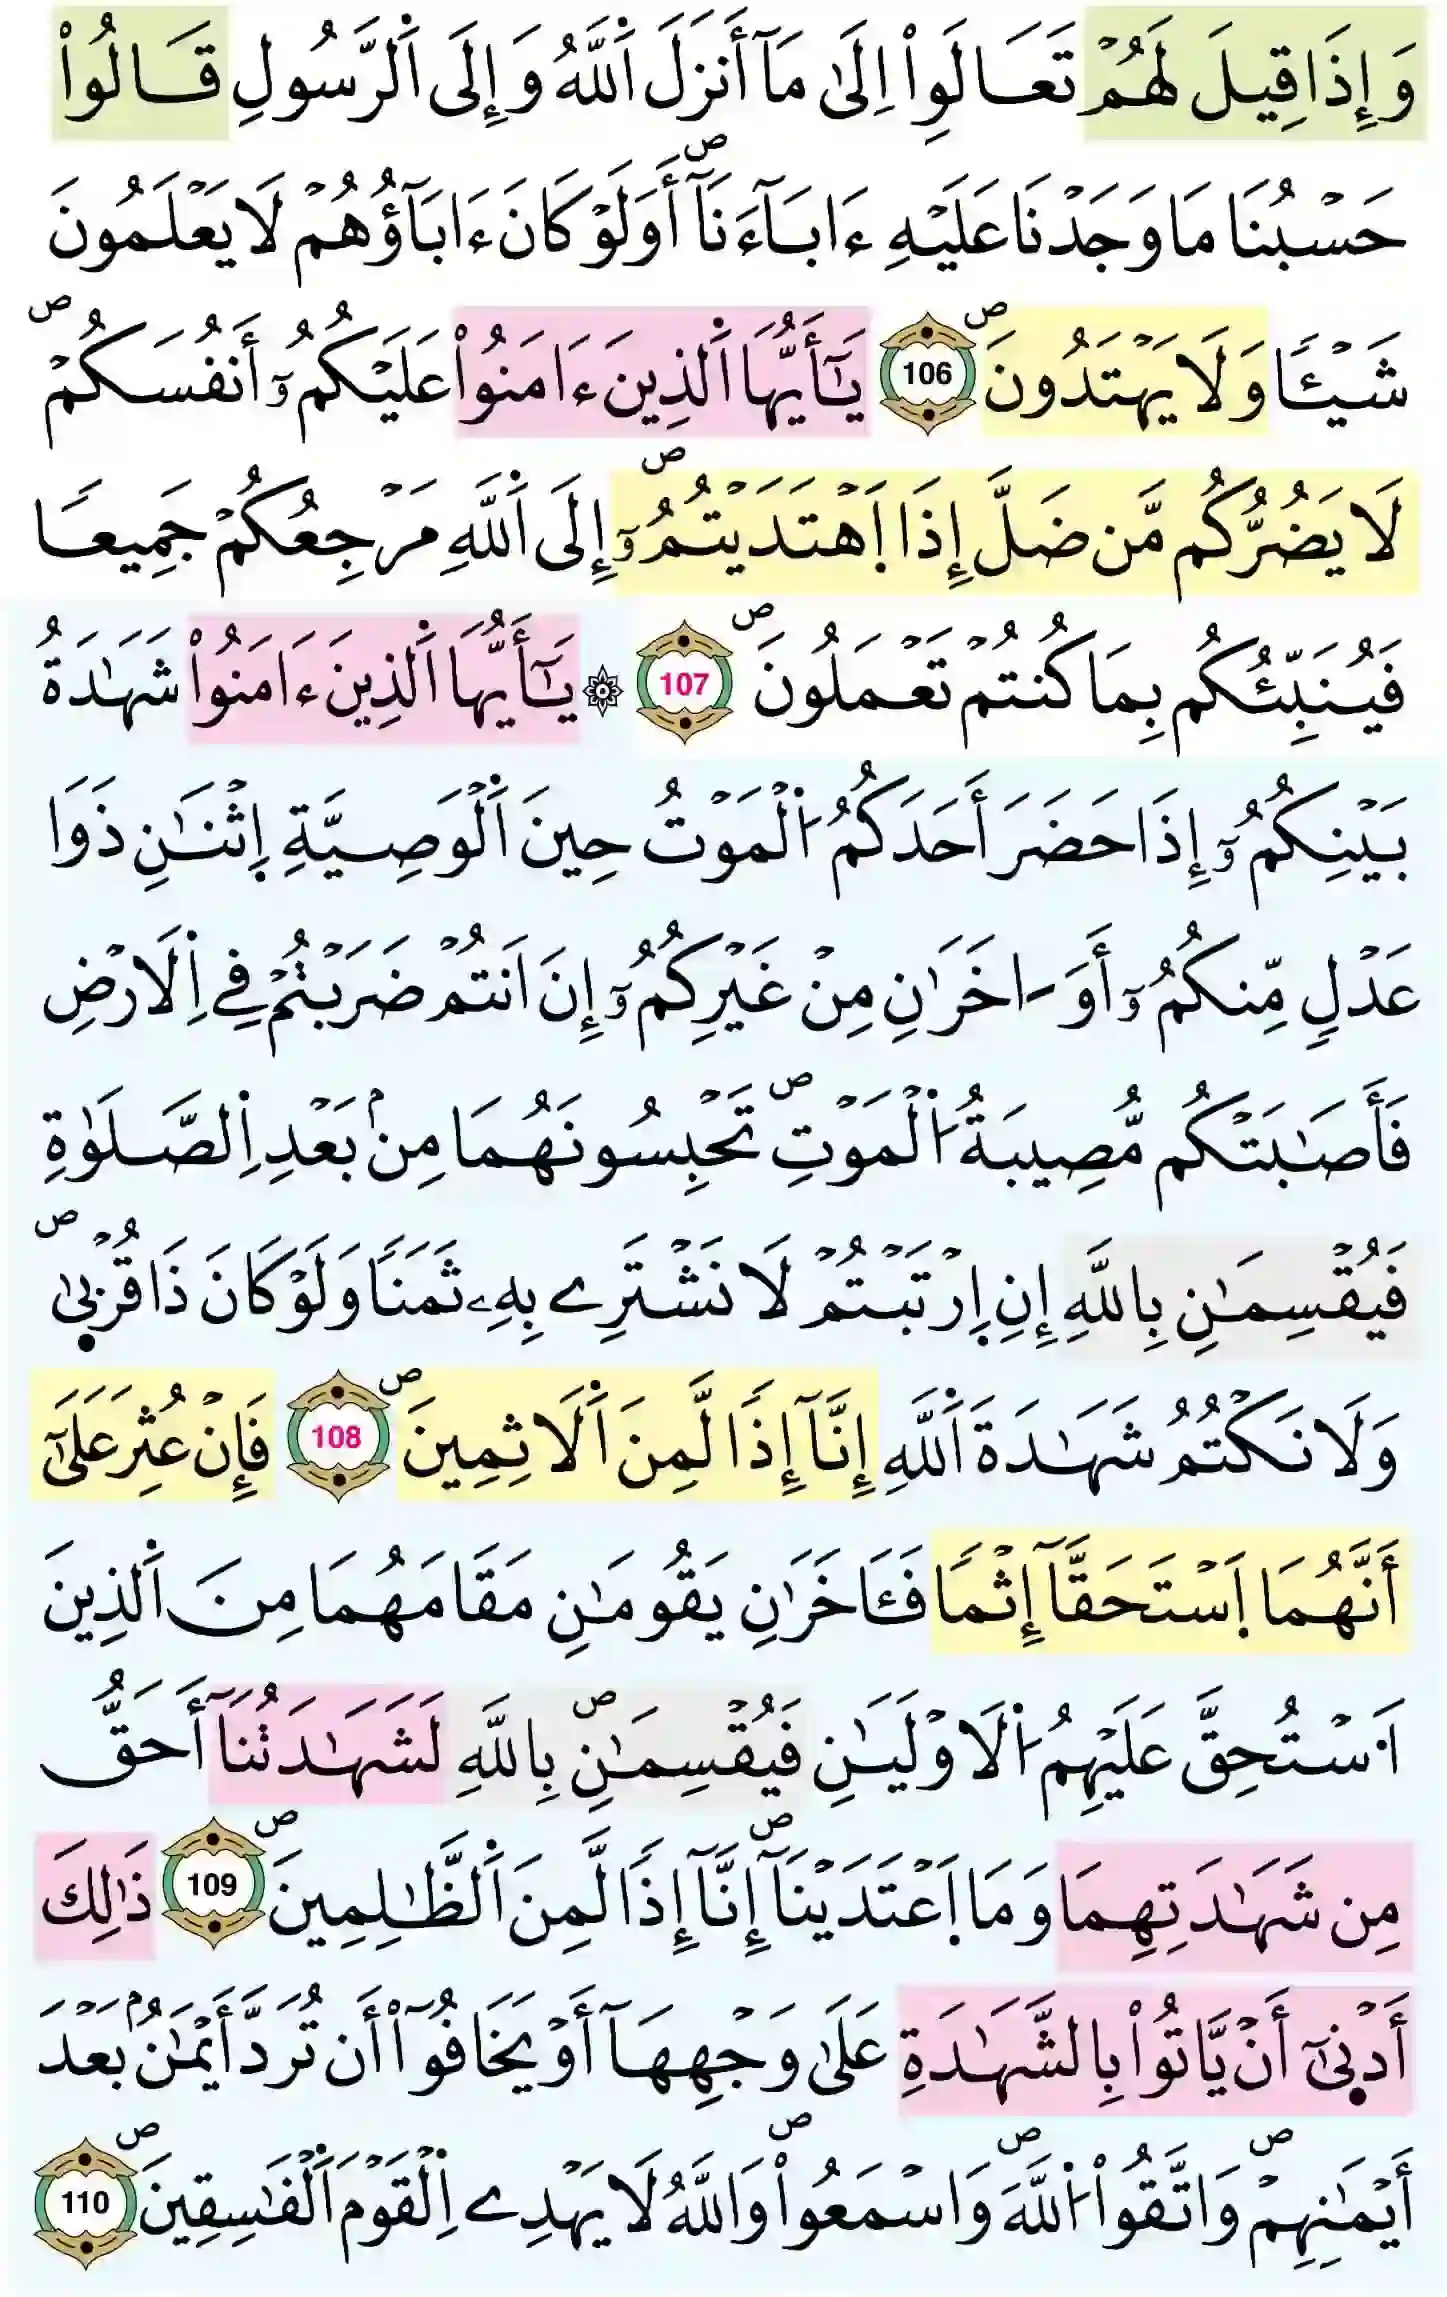 وَإِذَا قِيلَ لَهُمْ تَعَالَوِاْ اِلَىٰ مَآ أَنزَلَ اَ۬للَّهُ وَإِلَى اَ۬لرَّسُولِ قَالُواْ
حَسْبُنَا مَا وَجَدْنَا عَلَيْهِ ءَابَآءَنَآۖ أَوَلَوْ كَانَ ءَابَآؤُهُمْ لَا يَعْلَمُونَ
شَيْـٔٗا وَلَا يَهْتَدُونَۖ 106 يَٰٓأَيُّهَا اَ۬لذِينَ ءَامَنُواْ عَلَيْكُمُۥٓ أَنفُسَكُمْۖ
لَا يَضُرُّكُم مَّن ضَلَّ إِذَا اَ۪هْتَدَيْتُمُۥٓۖ إِلَى اَ۬للَّهِ مَرْجِعُكُمْ جَمِيعٗا
فَيُنَبِّئُكُم بِمَا كُنتُمْ تَعْمَلُونَۖ 107 ۞ يَٰٓأَيُّهَا اَ۬لذِينَ ءَامَنُواْ شَهَٰدَةُ
بَيْنِكُمُۥٓ إِذَا حَضَرَ أَحَدَكُمُ اُ۬لْمَوْتُ حِينَ اَ۬لْوَصِيَّةِ اِ۪ثْنَٰنِ ذَوَا
عَدْلٖ مِّنكُمُۥٓ أَوَ اٰخَرَٰنِ مِنْ غَيْرِكُمُۥٓ إِنَ اَنتُمْ ضَرَبْتُمْ فِے اِ۬لَارْضِ
فَأَصَٰبَتْكُم مُّصِيبَةُ اُ۬لْمَوْتِۖ تَحْبِسُونَهُمَا مِنۢ بَعْدِ اِ۬لصَّلَوٰةِ
فَيُقْسِمَٰنِ بِاللَّهِ إِنِ اِ۪رْتَبْتُمْ لَا نَشْتَرِے بِهِۦ ثَمَنٗا وَلَوْ كَانَ ذَا قُرْب۪ىٰۖ
وَلَا نَكْتُمُ شَهَٰدَةَ اَ۬للَّهِ إِنَّآ إِذٗا لَّمِنَ اَ۬لَاثِمِينَۖ 108 فَإِنْ عُثِرَ عَلَىٰٓ
أَنَّهُمَا اَ۪سْتَحَقَّآ إِثْمٗا فَـَٔاخَرَٰنِ يَقُومَٰنِ مَقَامَهُمَا مِنَ اَ۬لذِينَ
اَ۟سْتُحِقَّ عَلَيْهِمُ اُ۬لَاوْلَيَٰنِ فَيُقْسِمَٰنِۖ بِاللَّهِ لَشَهَٰدَتُنَآ أَحَقُّ
مِن شَهَٰدَتِهِمَا وَمَا اَ۪عْتَدَيْنَآۖ إِنَّآ إِذٗا لَّمِنَ اَ۬لظَّٰلِمِينَۖ 109 ذَٰلِكَ
أَدْن۪ىٰٓ أَنْ يَّاتُواْ بِالشَّهَٰدَةِ عَلَىٰ وَجْهِهَآ أَوْ يَخَافُوٓاْ أَن تُرَدَّ أَيْمَٰنُۢ بَعْدَ
أَيْمَٰنِهِمْۖ وَاتَّقُواْ اُ۬للَّهَۖ وَاسْمَعُواْۖ وَاللَّهُ لَا يَهْدِے اِ۬لْقَوْمَ اَ۬لْفَٰسِقِينَۖ 110